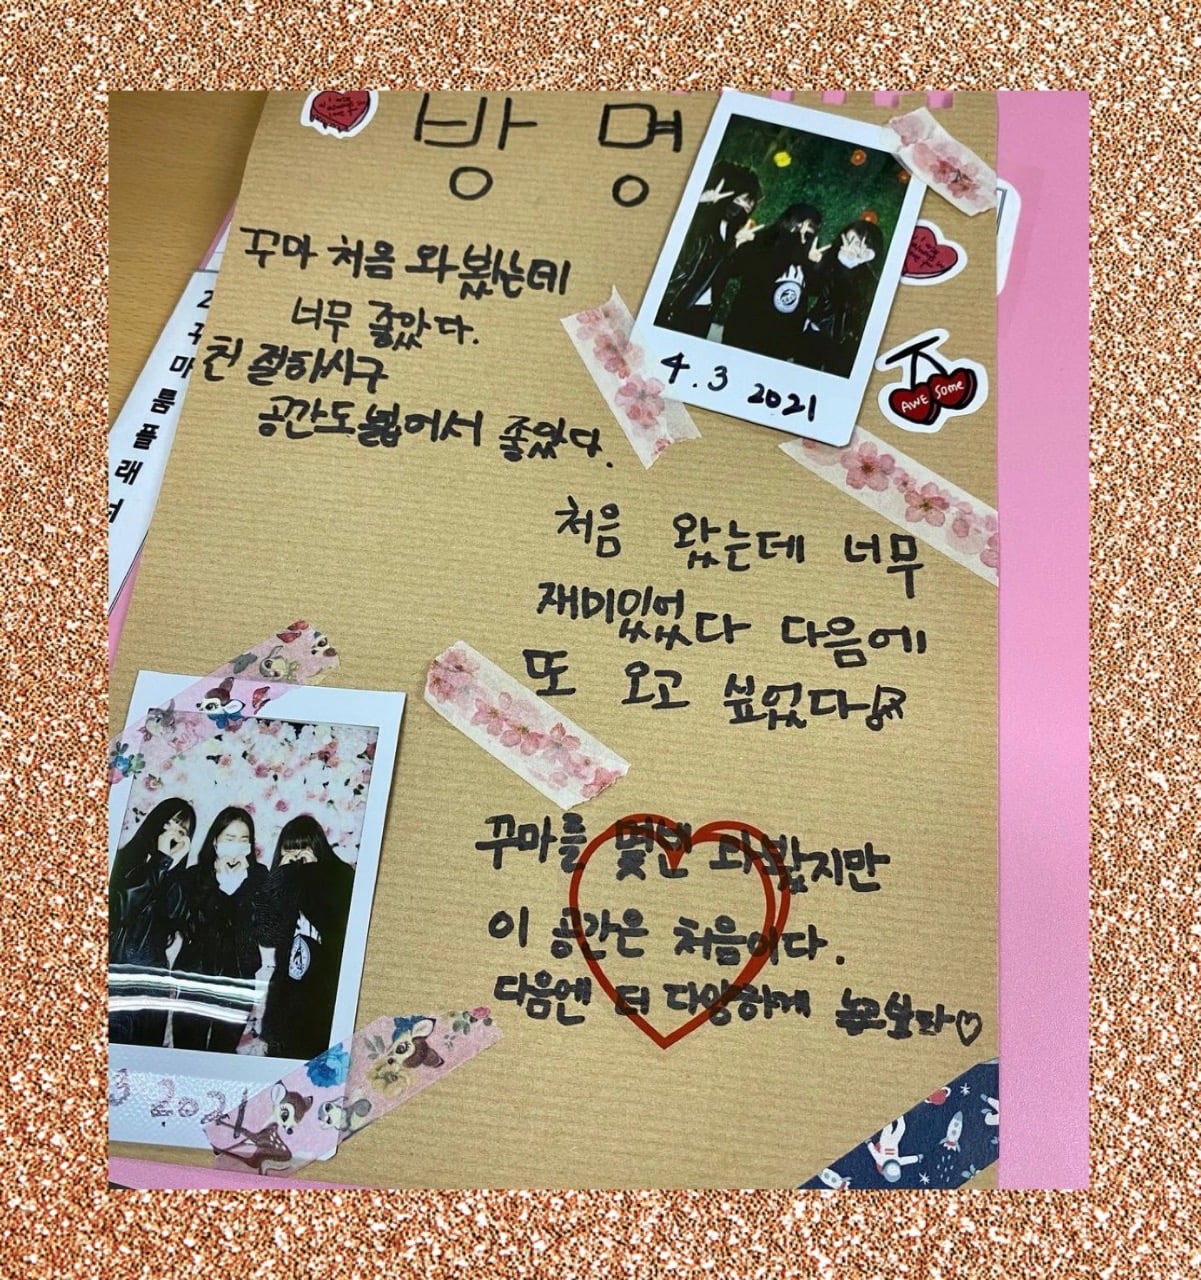 방명
꾸마 처음 와봤는데
너무 좋았다.
친절하시구
공간도 넓어서 좋았다.
4.3 2021
AWESome
처음 왔는데 너무
재미있었다 다음에
또 오고 싶었다
꾸마를 몇번 와봤지만
이 공간은 처음이다.
다음엔 더 다양하게 놀고싶다♡
3 2021
꾸
마
룸
플
래
너